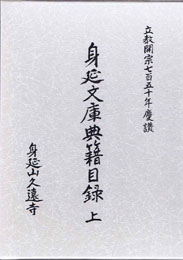 立教開宗七百五十年慶讃
身延文庫典籍目録 上
身延山久遠寺